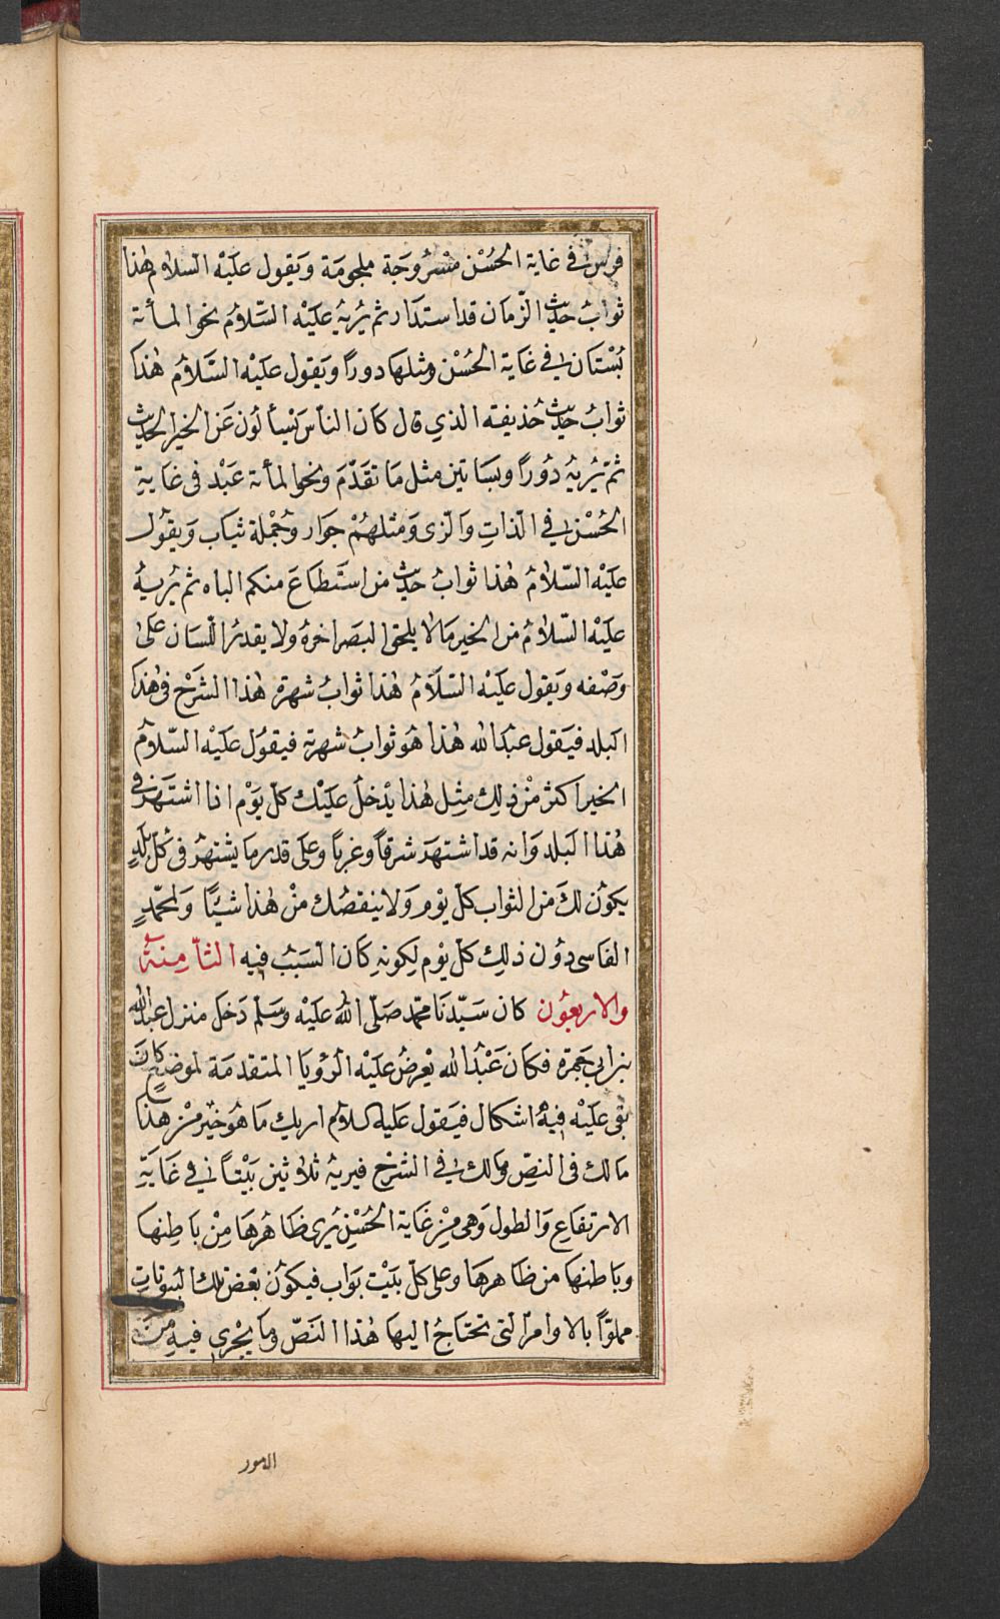 فرس في غاية الحُسْن مَسْرُوجَة ملجومَة وَيَقول عليْه السلام هٰذا
ثوابُ حديث الزّمان قد استدار ثم يُريهُ عليْه السَّلامُ نحو المأتة
بُسْتان في غَاية الحُسْن ومثلها دورًا وَيَقول عليْه السَّلامُ هٰذا
ثوابُ حديث حُذيفته الذي قال كان الناس يَسْألون عَن الخير الحديث
ثمّ يُريهُ دُورًا وبسَاتين مثل مَا تقدّمَ ونحو المأتة عَبْد في غَايةِ
الحُسْن في الذاتِ وَالزى وَمثلهُمْ جَوار وجُمْلة ثياب وَيقُول
عليْه السّلامُ هٰذا ثوابُ حديث من استَطاعَ منكم الباه ثم يُريهُ
عليْه السّلامُ من الخير مَا لا يلحق البَصَر اخرهُ ولا يقدرُ اللّسَان علىٰ
وَصْفه وَيَقول عليْه السّلَامُ هٰذا ثوابُ شهرة هٰذا الشَرْح في هٰذا
البلد فيَقول عبْدالله هٰذا هُوَ ثوابُ شهرته فيقوُل عليْه السّلامُ
الخير اكثر مِنْ ذلِك مِثِل هٰذا يَدْخلُ عليْك كلّ يَوْم اذا اشتَهَرَ في
هٰذا البَلد وَانه قد اشتهَرَ شرقًا وغربًا وعلى قدر مَا يشتهرُ في كل بَلَدٍ
يَكوُن لكَ مَن الثواب كلّ يَوْم وَلَا ينقصُك مِنْ هٰذا شيْئًا وَلمحَمّدٍ
الفَاسى دوُن ذلِك كلّ يوْم لِكونهِ كَانَ السَبَبُ فيهِ الثاْمِنَةُ
وَالاربعُون كان سَيّدنَا محمّد صَلّى اللهُ عَليْه وَسَلّم دَخَلَ منزل عبدالله
بن ابي جَمرَة فكانَ عَبْدُالله يَعْرضُ عليْه الرُؤيَا المتقدمَة لموضعٍ كانَ
بقى عليْه فيهُ اشكال فيَقول عليه السلامُ اريك مَا هُوَ خَيْر مِنْ هٰذا
مَا لك في النصِّ وَمَا لك في الشرْحِ فيريهُ ثلاثين بَيْتًا في غَايَةِ
الارتفاعِ وَالطول وَهى مِنْ غَاية الحُسْنِ يُرى ظَاهُرهَا مِنْ بَاطِنهَا
وبَاطنهَا من ظَاهرهَا وعلى كلّ بَيْت بَواب فيكوُن بَعْض تلك البيُوتاتِ
مملوًّا بالاوامر التى تحتاجُ اليهَا هٰذا النَصّ ومَا يَجْرى فيهِ مِنَ
الامور